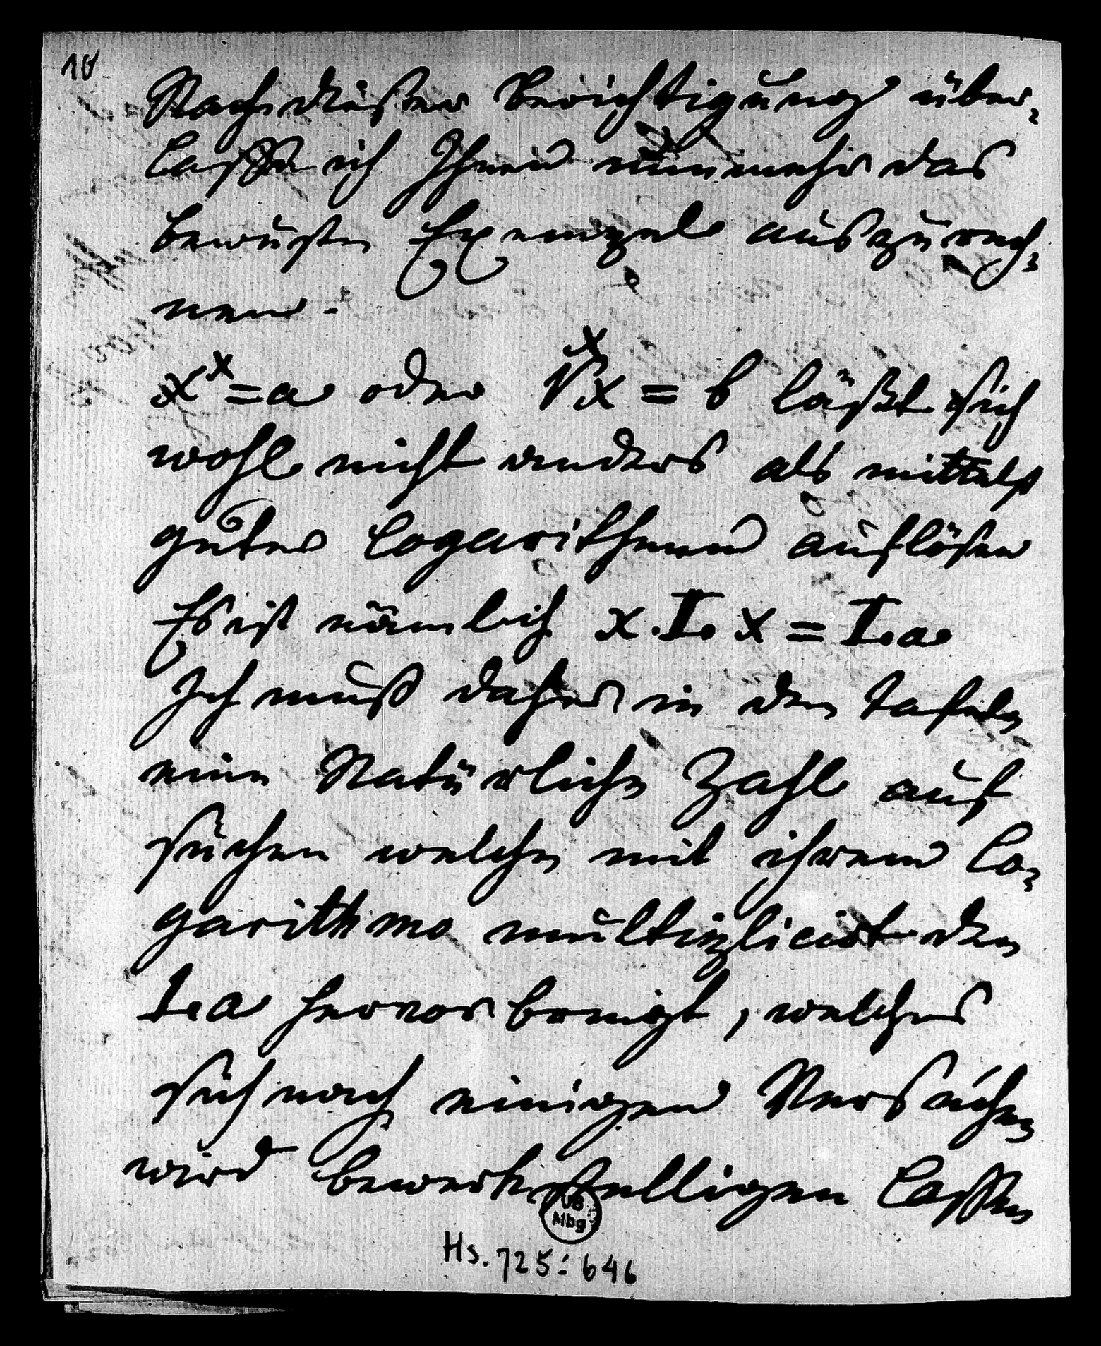 10
Nach dießer Berichtigung über-
lasse ich Ihnen nunmehr das
bewuste Exempel auszurech-
nen.
x^x = a oder \sqrt[x]{x} = b läßt sich
wohl nicht anders als mittelst
guter Logarithmen auflösen
Es ist nämlich x.L.x = L.a
Ich muß daher in den Tafeln
eine Natürliche Zahl auf
suchen welche mit ihrem Lo-
garithmo multiplicirt den
L.a hervor bringt, welches
sich nach einigen Versuchen
wird bewerkstelligen lassen
UB
Mbg
Hs. 725:646